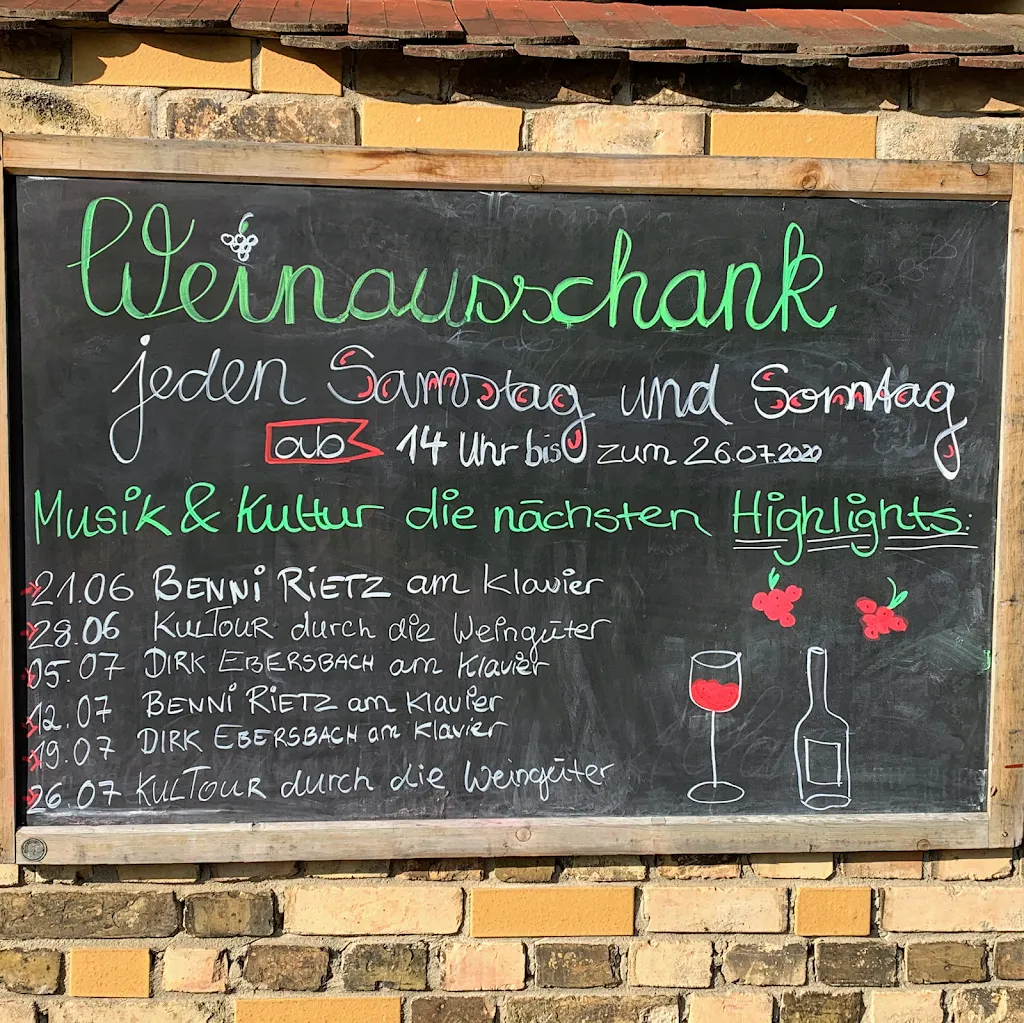 Weinausschank
jeden Samstag und Sonntag
ab 14 Uhr bis zum 26.07.2020
Musik & Kultur die nächsten Highlights:
21.06 BENNI RIETZ am Klavier
28.06 KULTOUR durch die Weingüter
05.07 DIRK EBERSBACH am Klavier
12.07 BENNI RIETZ am Klavier
19.07 DIRK EBERSBACH am Klavier
26.07 KULTOUR durch die Weingüter